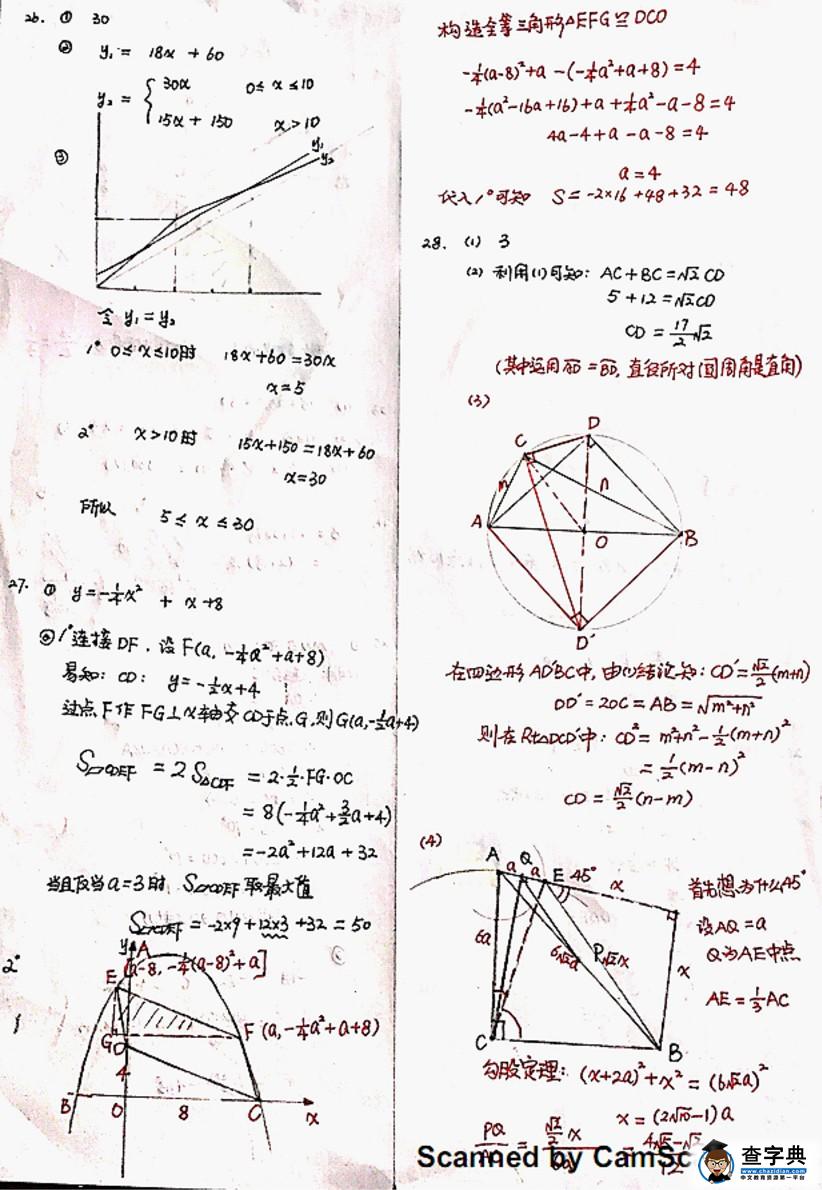 26. ① 30
② y₁ = 18x + 60
y₂ = { 30x 0≤x≤10
15x + 150 x>10
③
y₁
y₂
令 y₁=y₂
1° 0≤x≤10时 18x+60=30x
x=5
2° x>10时 15x+150=18x+60
x=30
所以 5≤x≤30
27. ① y=-¼x² + x+8
② 1° 连接DF, 设F(a, -¼a²+a+8)
易知: CD: y=-½x+4
过点F作FG⊥x轴交CD于点G, 则G(a,-½a+4)
S▱CDEF = 2S△CDF = 2·½·FG·OC
= 8(-¼a²+3/2a+4)
=-2a²+12a+32
当且仅当a=3时 S▱CDEF取最大值
S▱CDEF = -2×9+12×3+32 = 50
2°
y
A
E [a-8, -¼(a-8)²+a]
F (a, -¼a²+a+8)
G
D
4
B O 8 C x
构造全等三角形△EFG≌DCO
-¼(a-8)²+a-(-¼a²+a+8)=4
-¼(a²-16a+16)+a+¼a²-a-8=4
4a-4+a-a-8=4
a=4
代入1°可知 S=-2×16+48+32=48
28. (1) 3
(2) 利用(1)可知: AC+BC=√2CD
5+12=√2CD
CD=17/2√2
(其中运用 = , 直径所对圆周角是直角)
(3)
D
C
m n
A O B
D′
在四边形AD′BC中, 由(1)结论知: CD′=√2/2(m+n)
DD′=2OC=AB=√(m²+n²)
则在Rt△DCD′中: CD²=m²+n²-½(m+n)²
=½(m-n)²
CD=√2/2(n-m)
(4)
A a Q a E 45° x
6a 6√2a P √2x x
C B
首先想为什么45°
设AQ=a
Q为AE中点
AE=⅓AC
勾股定理: (x+2a)²+x²=(6√2a)²
x=(2√10-1)a
Scanned by CamSc
查字典
www.chazidian.com
中文教育资源第一平台